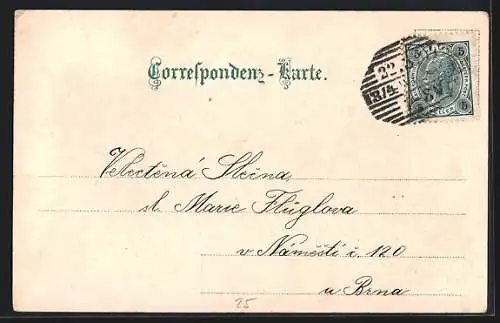 Correspondenz-Karte.
22
5
5
Velectěná Slečna
sl. Marie Flüglova
v Náměšti č. 120
u Brna
25